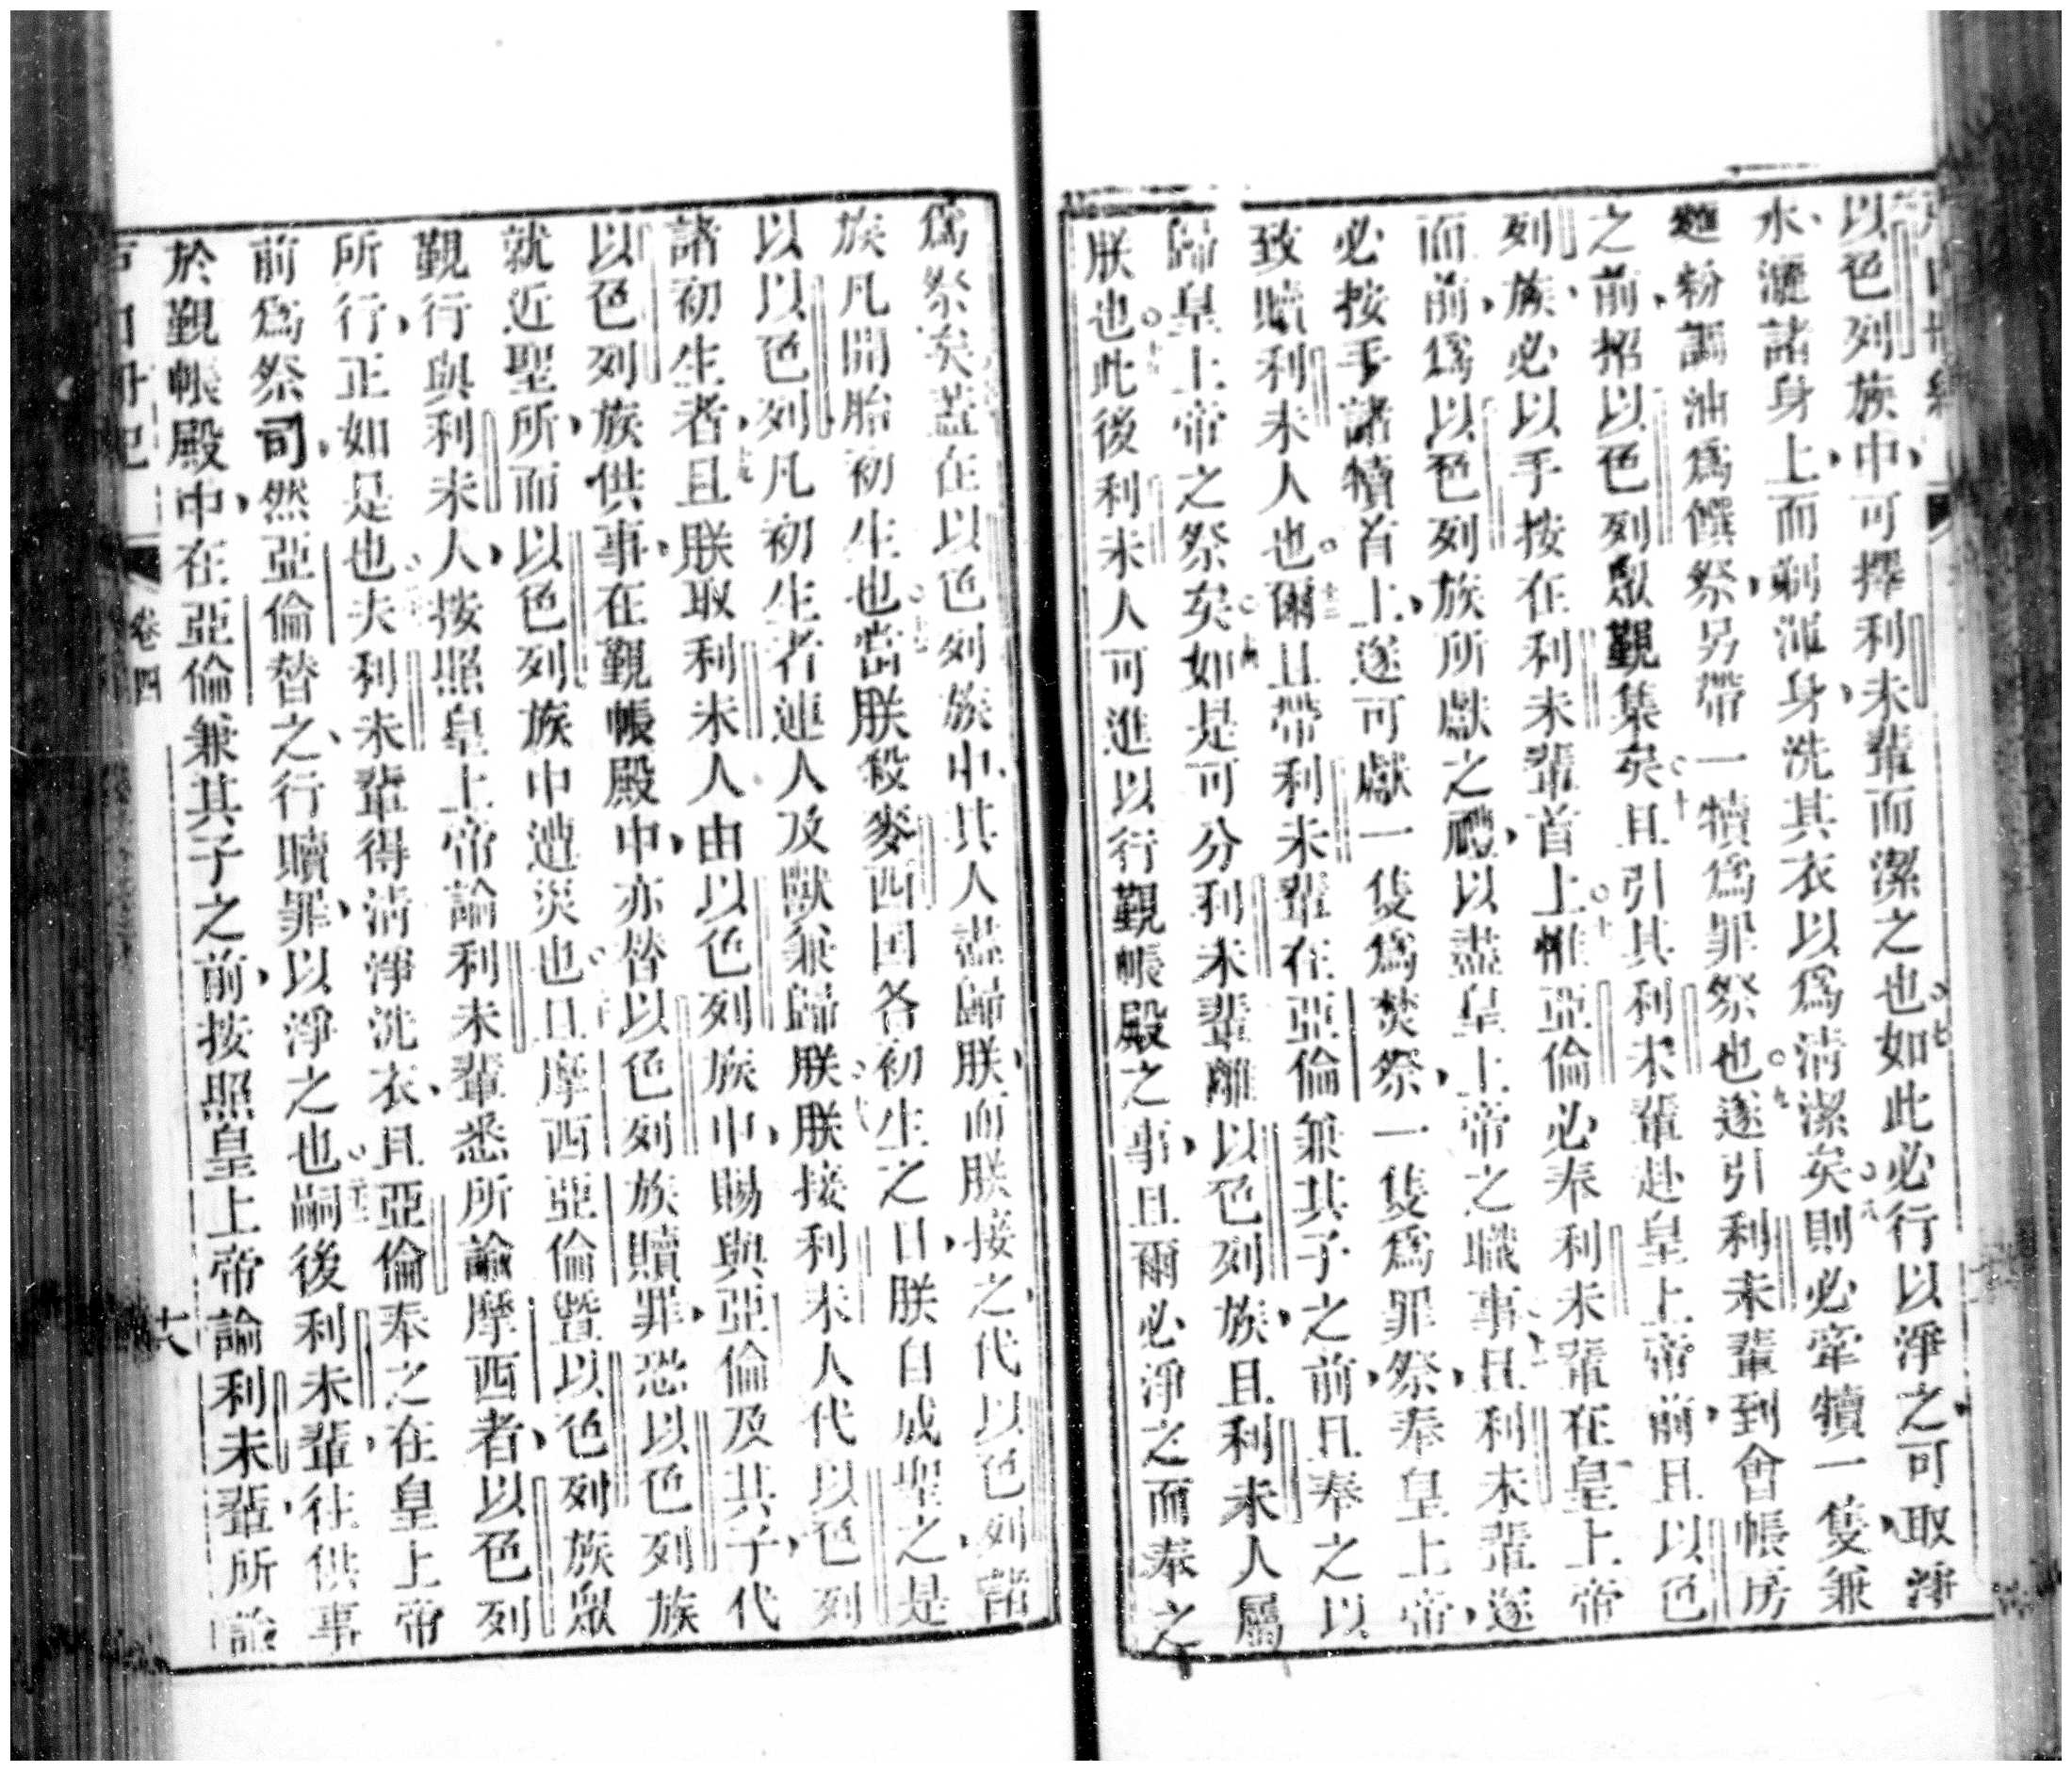 以色列族中、可擇利未輩而潔之也。七如此必行以淨之、可取淨
水、灑諸身上、而剃渾身、洗其衣以爲清潔矣。八則必牽犢一隻、兼
麵粉調油爲饌祭、另帶一犢爲罪祭也。九遂引利未輩到會帳房
之前、招以色列眾覲集矣。十且引其利未輩赴皇上帝前、且以色
列族、必以手按在利未輩首上。十一惟亞倫必奉利未輩在皇上帝
而前、爲以色列族所獻之禮、以盡皇上帝之職事。十二且利未輩遂
必按手諸犢首上、遂可獻一隻爲焚祭、一隻爲罪祭、奉皇上帝、
致贖利未人也。十三爾且帶利未輩在亞倫兼其子之前、且奉之以
歸皇上帝之祭矣。十四如是可分利未輩離以色列族、且利未人屬
朕也。十五此後利未人可進以行覲帳殿之事、且爾必淨之而奉之
爲祭矣。蓋在以色列族中、其人盡歸朕、而朕接之、代以色列諸
族凡開胎初生也。十七當朕殺麥西國各初生之日、朕自成聖之、是
以以色列凡初生者連人及獸兼歸朕。十八朕接利未人代以色列
諸初生者、十九且朕取利未人由以色列族中、賜與亞倫及其子、代
以色列族供事、在覲帳殿中、亦替以色列族贖罪、恐以色列族
就近聖所、而以色列族中遭災也。二十且摩西亞倫暨以色列族眾
覲行與利未人、按照皇上帝諭利未輩悉所諭摩西者、以色列
所行、正如是也。夫利未輩得清淨洗衣、且亞倫奉之在皇上帝
前爲祭司、然亞倫替之、行贖罪、以淨之也。嗣後利未輩、往供事
於覲帳殿中、在亞倫兼其子之前、按照皇上帝諭利未輩、所諭
戶口冊紀 卷四 十六